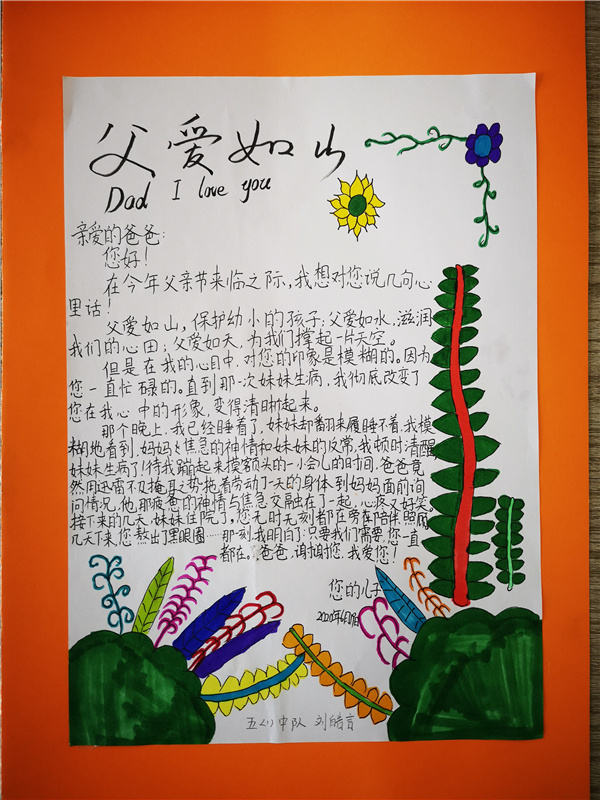 父爱如山
Dad I love you
亲爱的爸爸:
您好!
在今年父亲节来临之际,我想对您说几句心
里话!
父爱如山,保护幼小的孩子;父爱如水,滋润
我们的心田;父爱如天,为我们撑起一片天空。
但是在我的心目中,对您的印象是模糊的。因为
您一直忙碌的。直到那一次妹妹生病,我彻底改变了
您在我心中的形象,变得清晰起来。
那个晚上,我已经睡着了,妹妹却翻来履睡不着,我模
糊地看到,妈妈焦急的神情和妹妹的反常,我顿时清醒
妹妹生病了!待我蹦起来摸额头的一小会儿的时间,爸爸竟
然用迅雷不及掩耳之势拖着劳动了一天的身体到妈妈面前询
问情况,他那疲惫的神情与焦急交融在了一起,心疼又好笑。
接下来的几天,妹妹住院了,您无时无刻都在旁在陪伴照顾
几天下来,您熬出了黑眼圈……那一刻我明白了:只要我们需要,您一直
都在。爸爸,谢谢您,我爱您!
您的儿子
五(1)中队 刘皓言